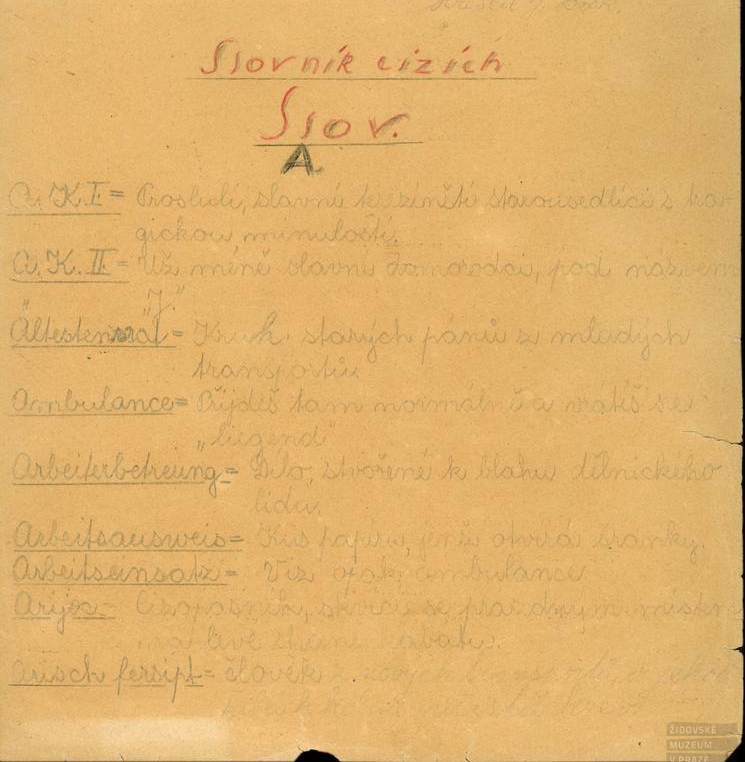 Slovník cizích
Slov.
A
A. K. I. = Prosluli, slavní terezínští starousedlíci s tra-
gickou minulostí.
A. K. II. = Už méně slavní domorodci, pod názvem
"J."
Ältestenrat = Kruh starých pánů z mladých
transportů.
Ambulance = Přijdeš tam normálně a vrátíš se
„liegend"
Arbeiterbetreung = Dílo, stvořené k blahu dělnického
lidu.
Arbeitsausweis = Kus papíru, jenž otvírá šranky.
Arbeitseinsatz = Viz opak, ambulance.
Cizopasník, se prázdným místem
na levé straně kabátu.
Arisch fersipt = člověk z
ŽIDOVSKÉ
MUZEUM
V PRAZE